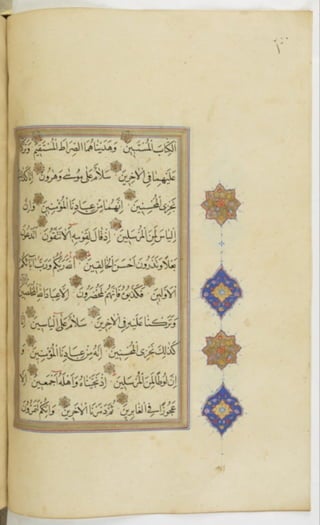 الكتاب المستبين وهديناهما الصراط المستقيم وتركنا
عليهما في الآخرين سلام على موسى وهرون إنا كذلك
نجزي المحسنين إنهما من عبادنا المؤمنين وإن
إلياس لمن المرسلين إذ قال لقومه ألا تتقون أتدعون
بعلا وتذرون أحسن الخالقين الله ربكم ورب آبائكم
الأولين فكذبوه فإنهم لمحضرون إلا عباد الله المخلصين
وتركنا عليه في الآخرين سلام على الياسين إنا
كذلك نجزي المحسنين إنه من عبادنا المؤمنين و
إن لوطا لمن المرسلين إذ نجيناه وأهله أجمعين إلا
عجوزا في الغابرين ثم دمرنا الآخرين وإنكم لتمرون